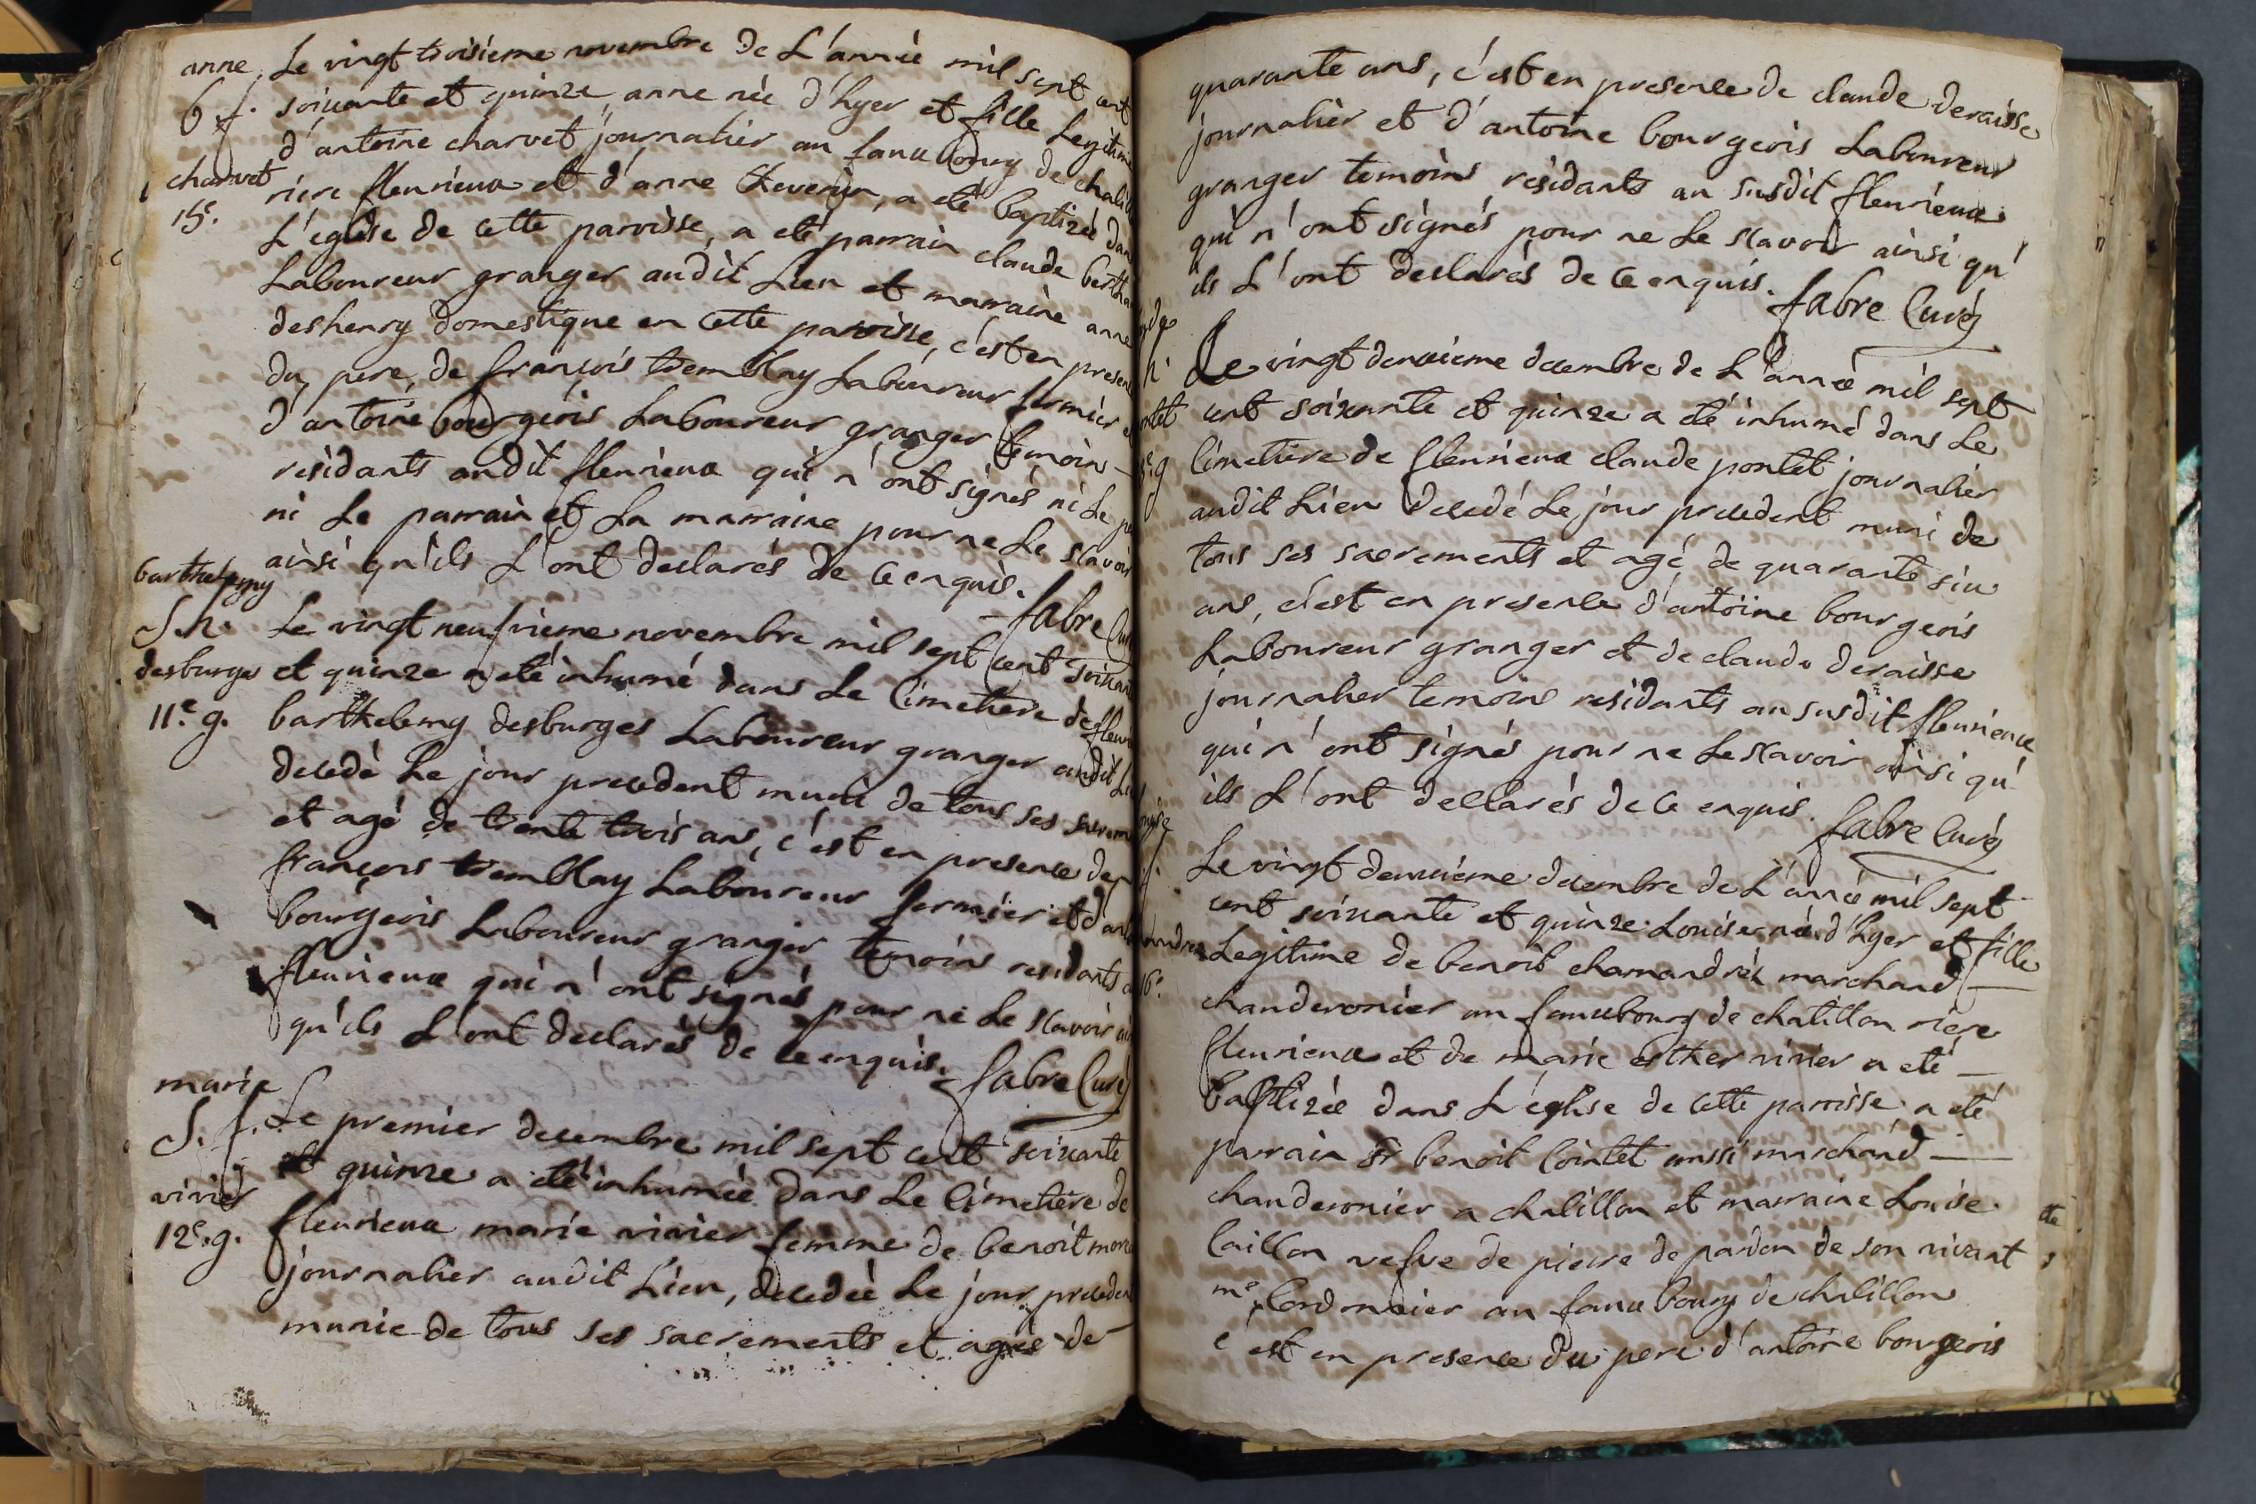 anne
b f.
charvet
15e.
Le vingt troisieme novembre de L'année mil sept cent
soixante et quinze anne née d'hyer et fille Legitime
d'antoine charvet journalier au fauxbourg de chatill
riere fleurieux et d'anne a eté baptizée dans
L'eglise de cette paroisse, a eté parrain claude
Laboureur granger audit Lieu et marraine anne
deshenry domestique en cette paroisse, c'est en presen
du pere, de françois tremblay Laboureur fermier et
d'antoine bourgeois Laboureur granger temoins
residants audit fleurieux qui n'ont signés ni Le pe
ni Le parrain et La marraine pour ne Le scavoir
ainsi qu'ils L'ont declarés de ce enquis.
fabre Cu
barthelemy
S. h.
desburges
11e. g.
Le vingt neufvieme novembre mil sept cent soixant
et quinze a eté inhumé dans Le Cimetiere de fleuri
barthelemy desburges Laboureur granger audit Li
decedé Le jour precedent muni de tous ses sacrem
et agé de trente trois ans, c'est en presence de
françois tremblay Laboureur fermier et d'anto
bourgeois Laboureur granger temoins residants a
fleurieux qui n'ont signés pour ne Le scavoir ai
qu'ils L'ont declarés de ce enquis.
fabre Curé
marie
S. f.
vivier
12e. g.
Le premier decembre mil sept cent soixante
et quinze a eté inhumée dans Le Cimetiere de
fleurieux marie vivier femme de benoit more
journalier audit Lieu, decedée Le jour preceden
munie de tous ses sacrements et agée de
quarante ans, c'est en presence de claude deraisse
journalier et d'antoine bourgeois Laboureur
granger temoins residants au susdit fleurieux
qui n'ont signés pour ne Le scavoir ainsi qu'
ils L'ont declarés de ce enquis.
fabre Curé
Le vingt deuxieme decembre de L'année mil sept
cent soixante et quinze a eté inhumé dans Le
Cimetiere de fleurieux claude pontet journalier
audit Lieu decedé Le jour precedent muni de
tous ses sacrements et agé de quarante six
ans, c'est en presence d'antoine bourgeois
Laboureur granger et de claude deraisse
journalier temoins residants au susdit fleurieux
qui n'ont signés pour ne Le scavoir ainsi qu'
ils L'ont declarés de ce enquis.
fabre Curé
16e.
Le vingt deuxieme decembre de L'année mil sept
cent soixante et quinze Louise née d'hyer et fille
Legitime de benoit chamandrés marchand
chauderonier au fauxbourg de chatillon riere
fleurieux et de marie esther vivier a eté
baptizée dans L'eglise de cette paroisse a eté
parrain Sr benoit Cointet aussi marchand
chauderonier a chatillon et marraine Louise
Caillon vefve de pierre de pardon de son vivant
me Cordonnier au fauxbourg de chatillon
c'est en presence du pere d'antoine bourgeois